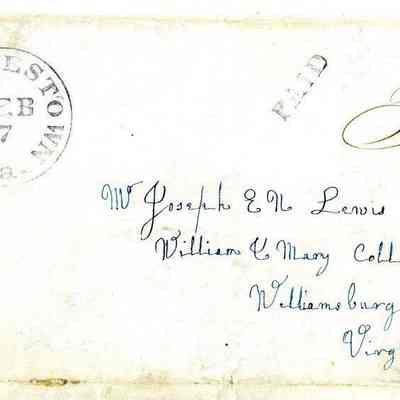 LESTOWN
EB
7
a.
PAID
Mr Joseph E N Lewis
William & Mary Coll
Williamsburg
Virg